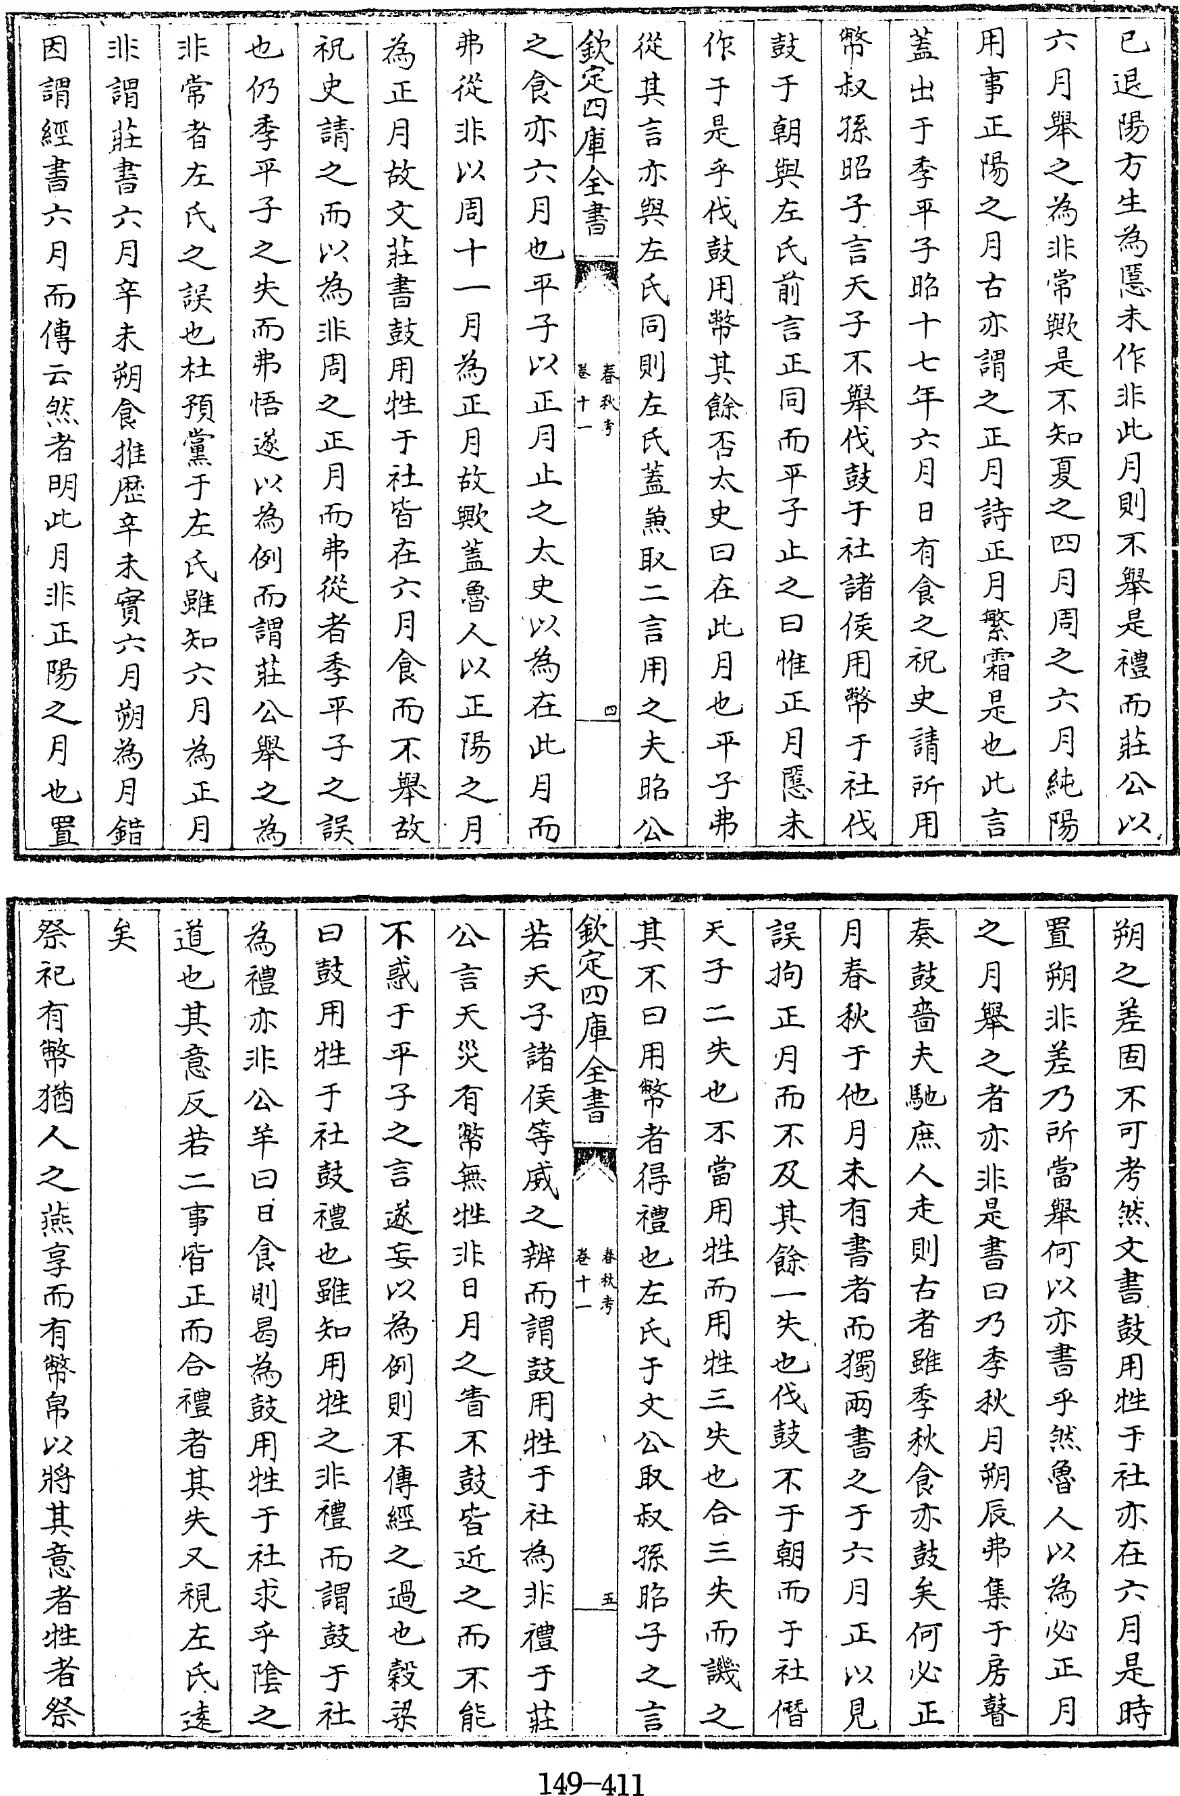 已退陽方生為慝未作非此月則不舉是禮而莊公以
六月舉之為非常歟是不知夏之四月周之六月純陽
用事正陽之月古亦謂之正月詩正月繁霜是也此言
蓋出于季平子昭十七年六月日有食之祝史請所用
幣叔孫昭子言天子不舉伐鼓于社諸侯用幣于社伐
鼓于朝與左氏前言正同而平子止之曰惟正月慝未
作于是乎伐鼓用幣其餘否太史曰在此月也平子弗
從其言亦與左氏同則左氏蓋兼取二言用之夫昭公
欽定四庫全書
春秋考
卷十一
四
之食亦六月也平子以正月止之太史以為在此月而
弗從非以周十一月為正月故歟蓋魯人以正陽之月
為正月故文莊書鼓用牲于社皆在六月食而不舉故
祝史請之而以為非周之正月而弗從者季平子之誤
也仍季平子之失而弗悟遂以為例而謂莊公舉之為
非常者左氏之誤也杜預黨于左氏雖知六月為正月
非謂莊書六月辛未朔食推歴辛未實六月朔為月錯
因謂經書六月而傳云然者明此月非正陽之月也置
朔之差固不可考然文書鼓用牲于社亦在六月是時
置朔非差乃所當舉何以亦書乎然魯人以為必正月
之月舉之者亦非是書曰乃季秋月朔辰弗集于房瞽
奏鼓嗇夫馳庶人走則古者雖季秋食亦鼓矣何必正
月春秋于他月未有書者而獨兩書之于六月正以見
誤拘正月而不及其餘一失也伐鼓不于朝而于社僭
天子二失也不當用牲而用牲三失也合三失而譏之
其不曰用幣者得禮也左氏于文公取叔孫昭子之言
欽定四庫全書
春秋考
卷十一
五
若天子諸侯等威之辨而謂鼓用牲于社為非禮于莊
公言天災有幣無牲非日月之眚不鼓皆近之而不能
不惑于平子之言遂妄以為例則不傳經之過也穀梁
曰鼓用牲于社鼓禮也雖知用牲之非禮而謂鼓于社
為禮亦非公羊曰日食則曷為鼓用牲于社求乎陰之
道也其意反若二事皆正而合禮者其失又視左氏遠
矣
祭祀有幣猶人之燕享而有幣帛以將其意者牲者祭
149-411